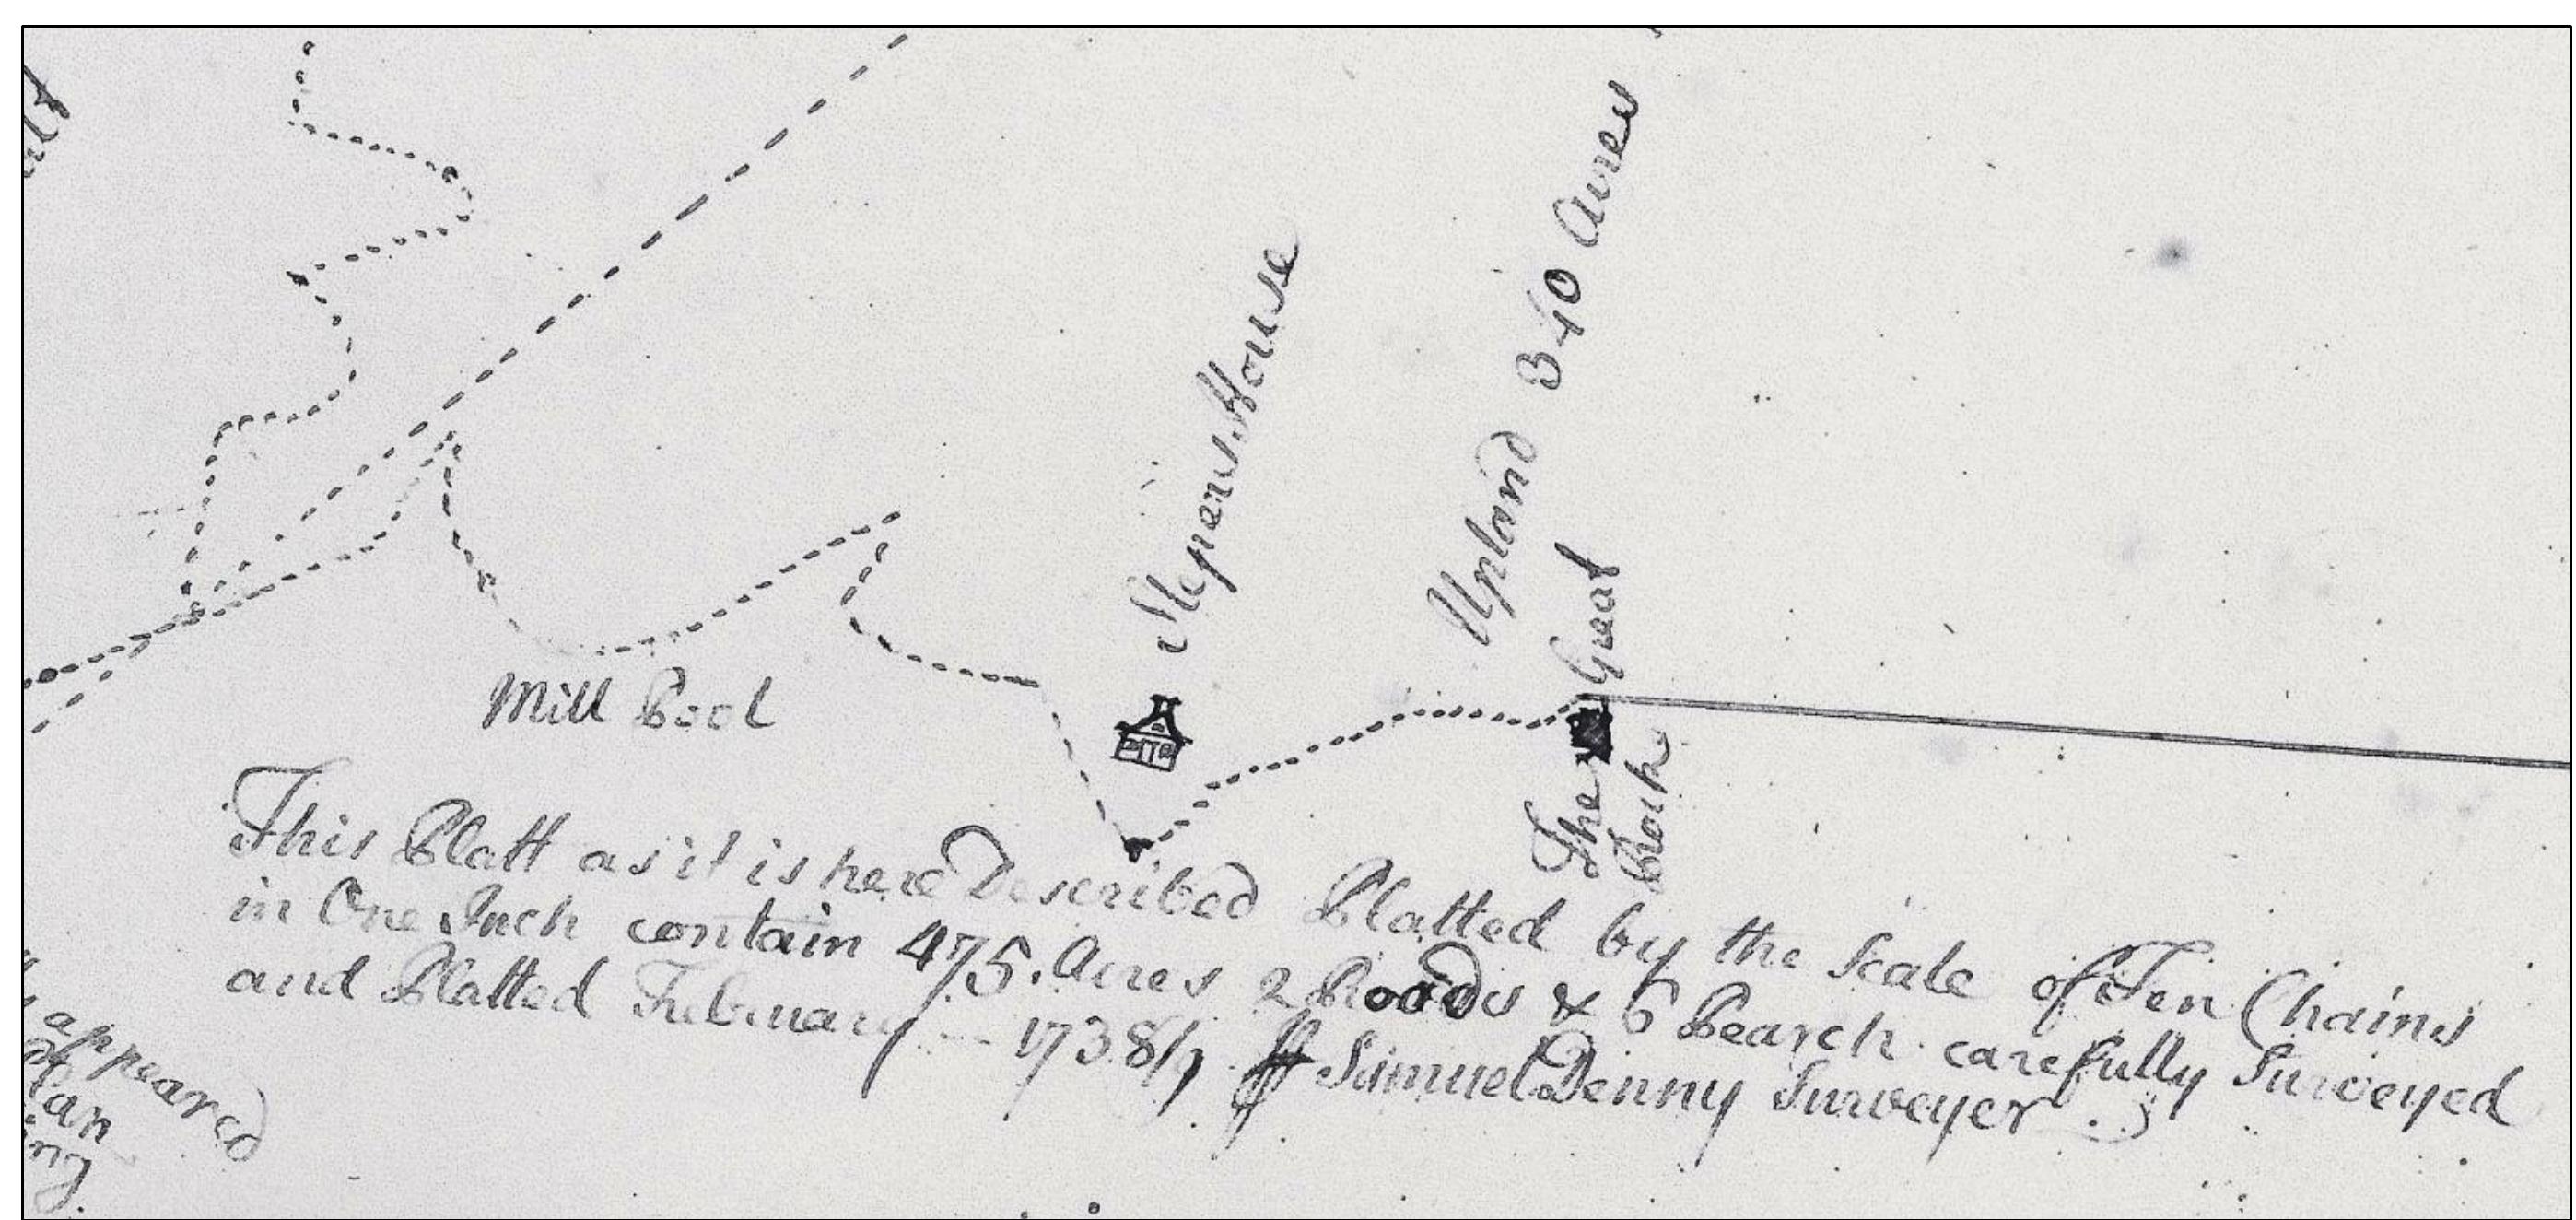 Upland 340 Acres
House
The Great
Rock
Mill Pool
This Platt as it is here Described Platted by the Scale of Ten Chains
in One Inch contain 475. Acres 2 Roods & 6 Pearch carefully Surveyed
and Platted February 1738/9 Samuel Denny Surveyer
appeared